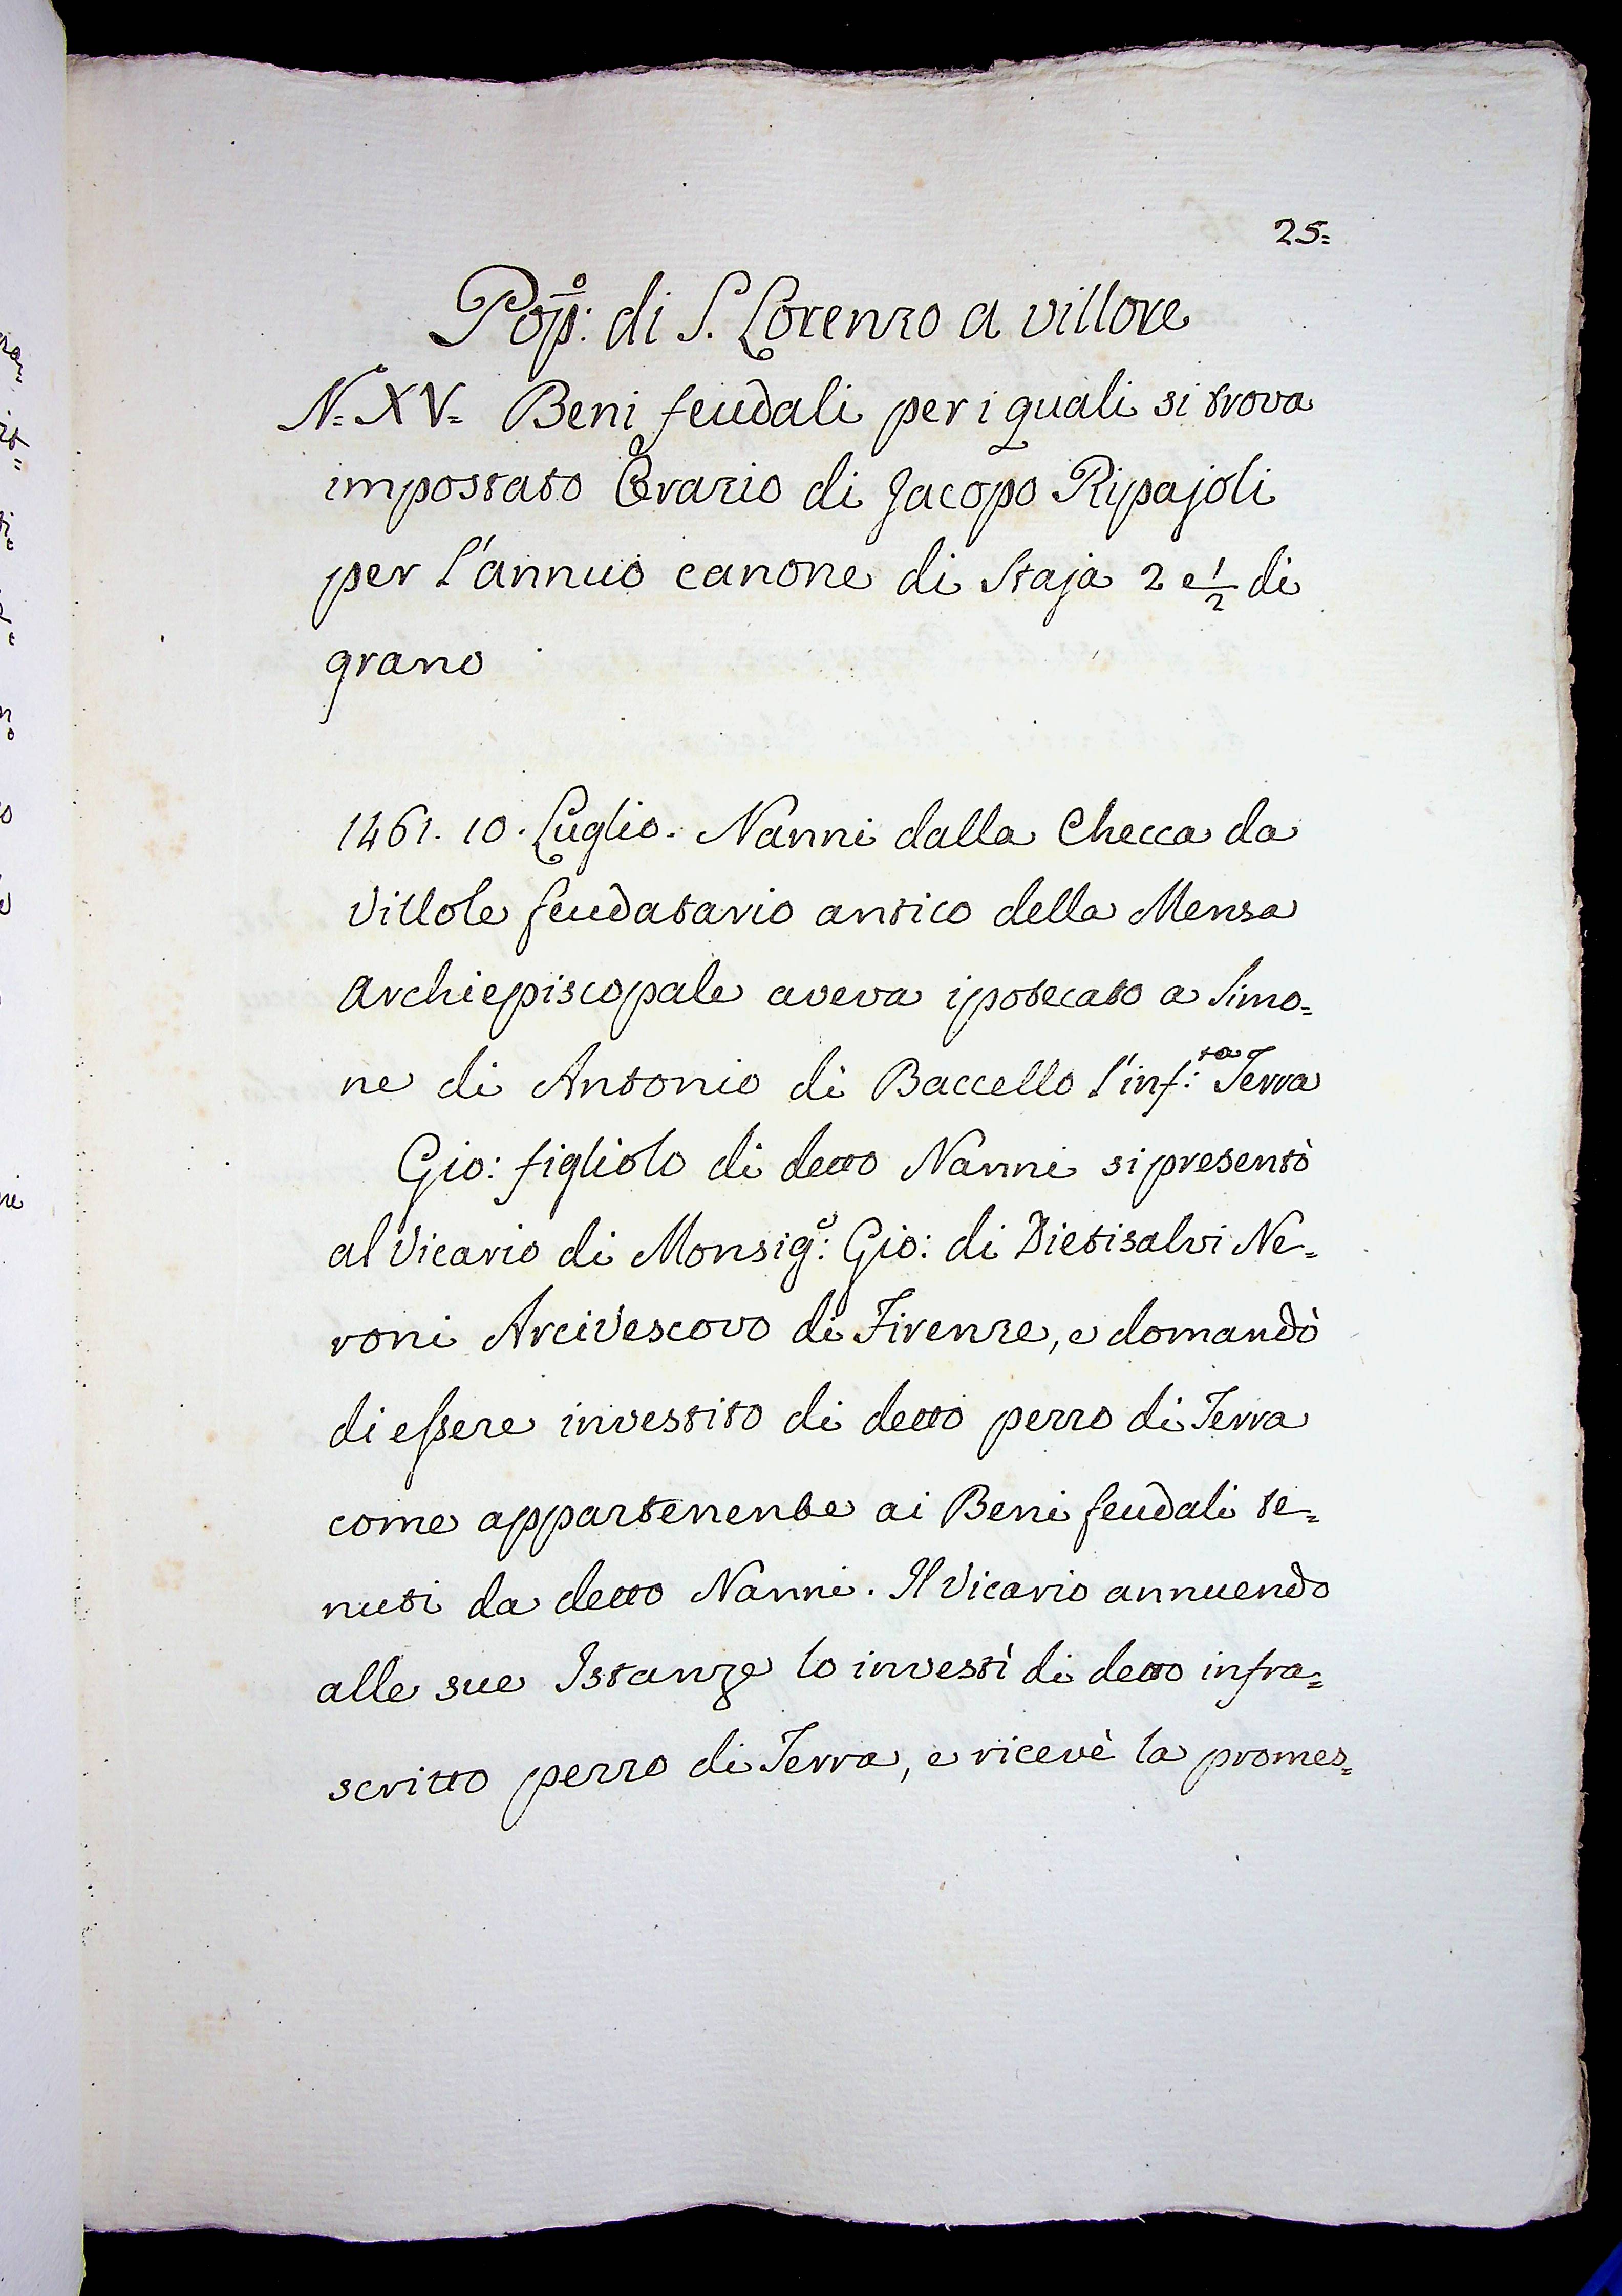 25=
Pop:º di S. Lorenzo a villore
N.= XV= Beni feudali per i quali si trova
impostato Orazio di Jacopo Ripajoli
per l'annuo canone di Staja 2 e 1/2 di
grano
1461. 10. Luglio. Nanni dalla Checca da
Villole feudatario antico della Mensa
Archiepiscopale aveva ipotecato a Simo=
ne di Antonio di Baccello l'inf:ta Terra
Gio: figliolo di detto Nanni si presentò
al Vicario di Monsig:e Gio: di Dietisalvi Ne=
roni Arcivescovo di Firenze, e domandò
di essere investito di detto pezzo di Terra
come appartenente ai Beni feudali te=
nuti da detto Nanni. Il Vicario annuendo
alle sue Istanze lo investì di detto infra=
scritto pezzo di Terra, e ricevè la promes=